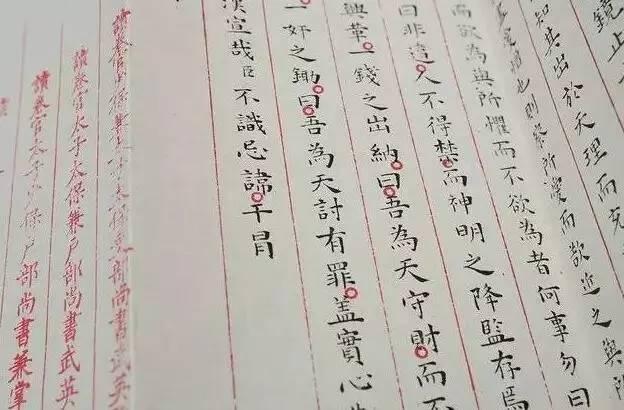 鏡止
知其出於天理而克
也則終所護而欲近之與所
而欲為與所懼而不欲為者何事勿曰
曰非遠人不得禁而神明之降監存焉
興華一錢之出納曰吾為天守財而不
一奸之鋤曰吾為天討有罪蓋實心
漢宣哉臣不識忌諱干冒
讀卷官 保兼 部尚書武英
讀卷官太子太保兼戶部尚書武英
讀卷官太子少保戶部尚書兼掌